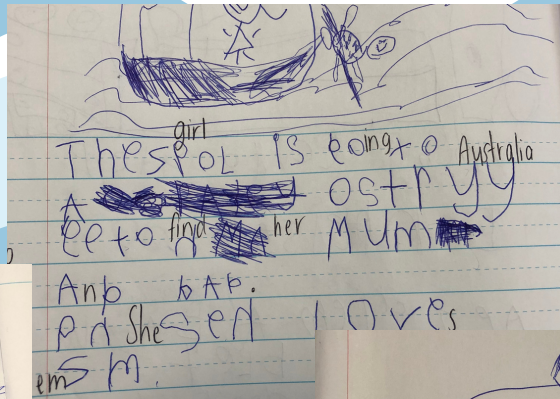 girl
Thespol is eoingto Australia
A ostryy
eeto find her Mum
Anb bAb.
she loves
em